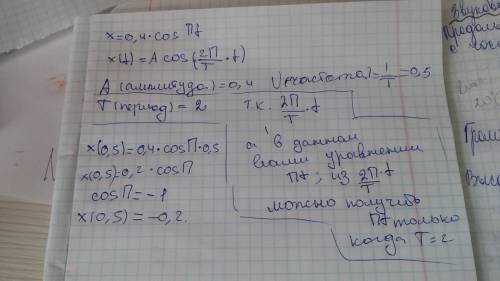 x=0,4·cos Πt
x(t)=A cos(2Π/T·t)
A (амплитуда)=0,4 ν(частота)=1/T=0,5
T(период)=2 т.к. 2Π/T·t
x(0,5)=0,4·cosΠ·0,5
x(0,5)=0,2·cosΠ
cosΠ=-1
x(0,5)=-0,2.
а в данном
вами уравнении
Πt, из 2Π/T·t
можно получить
Πt только
когда T=2
Звуковы
Продоль